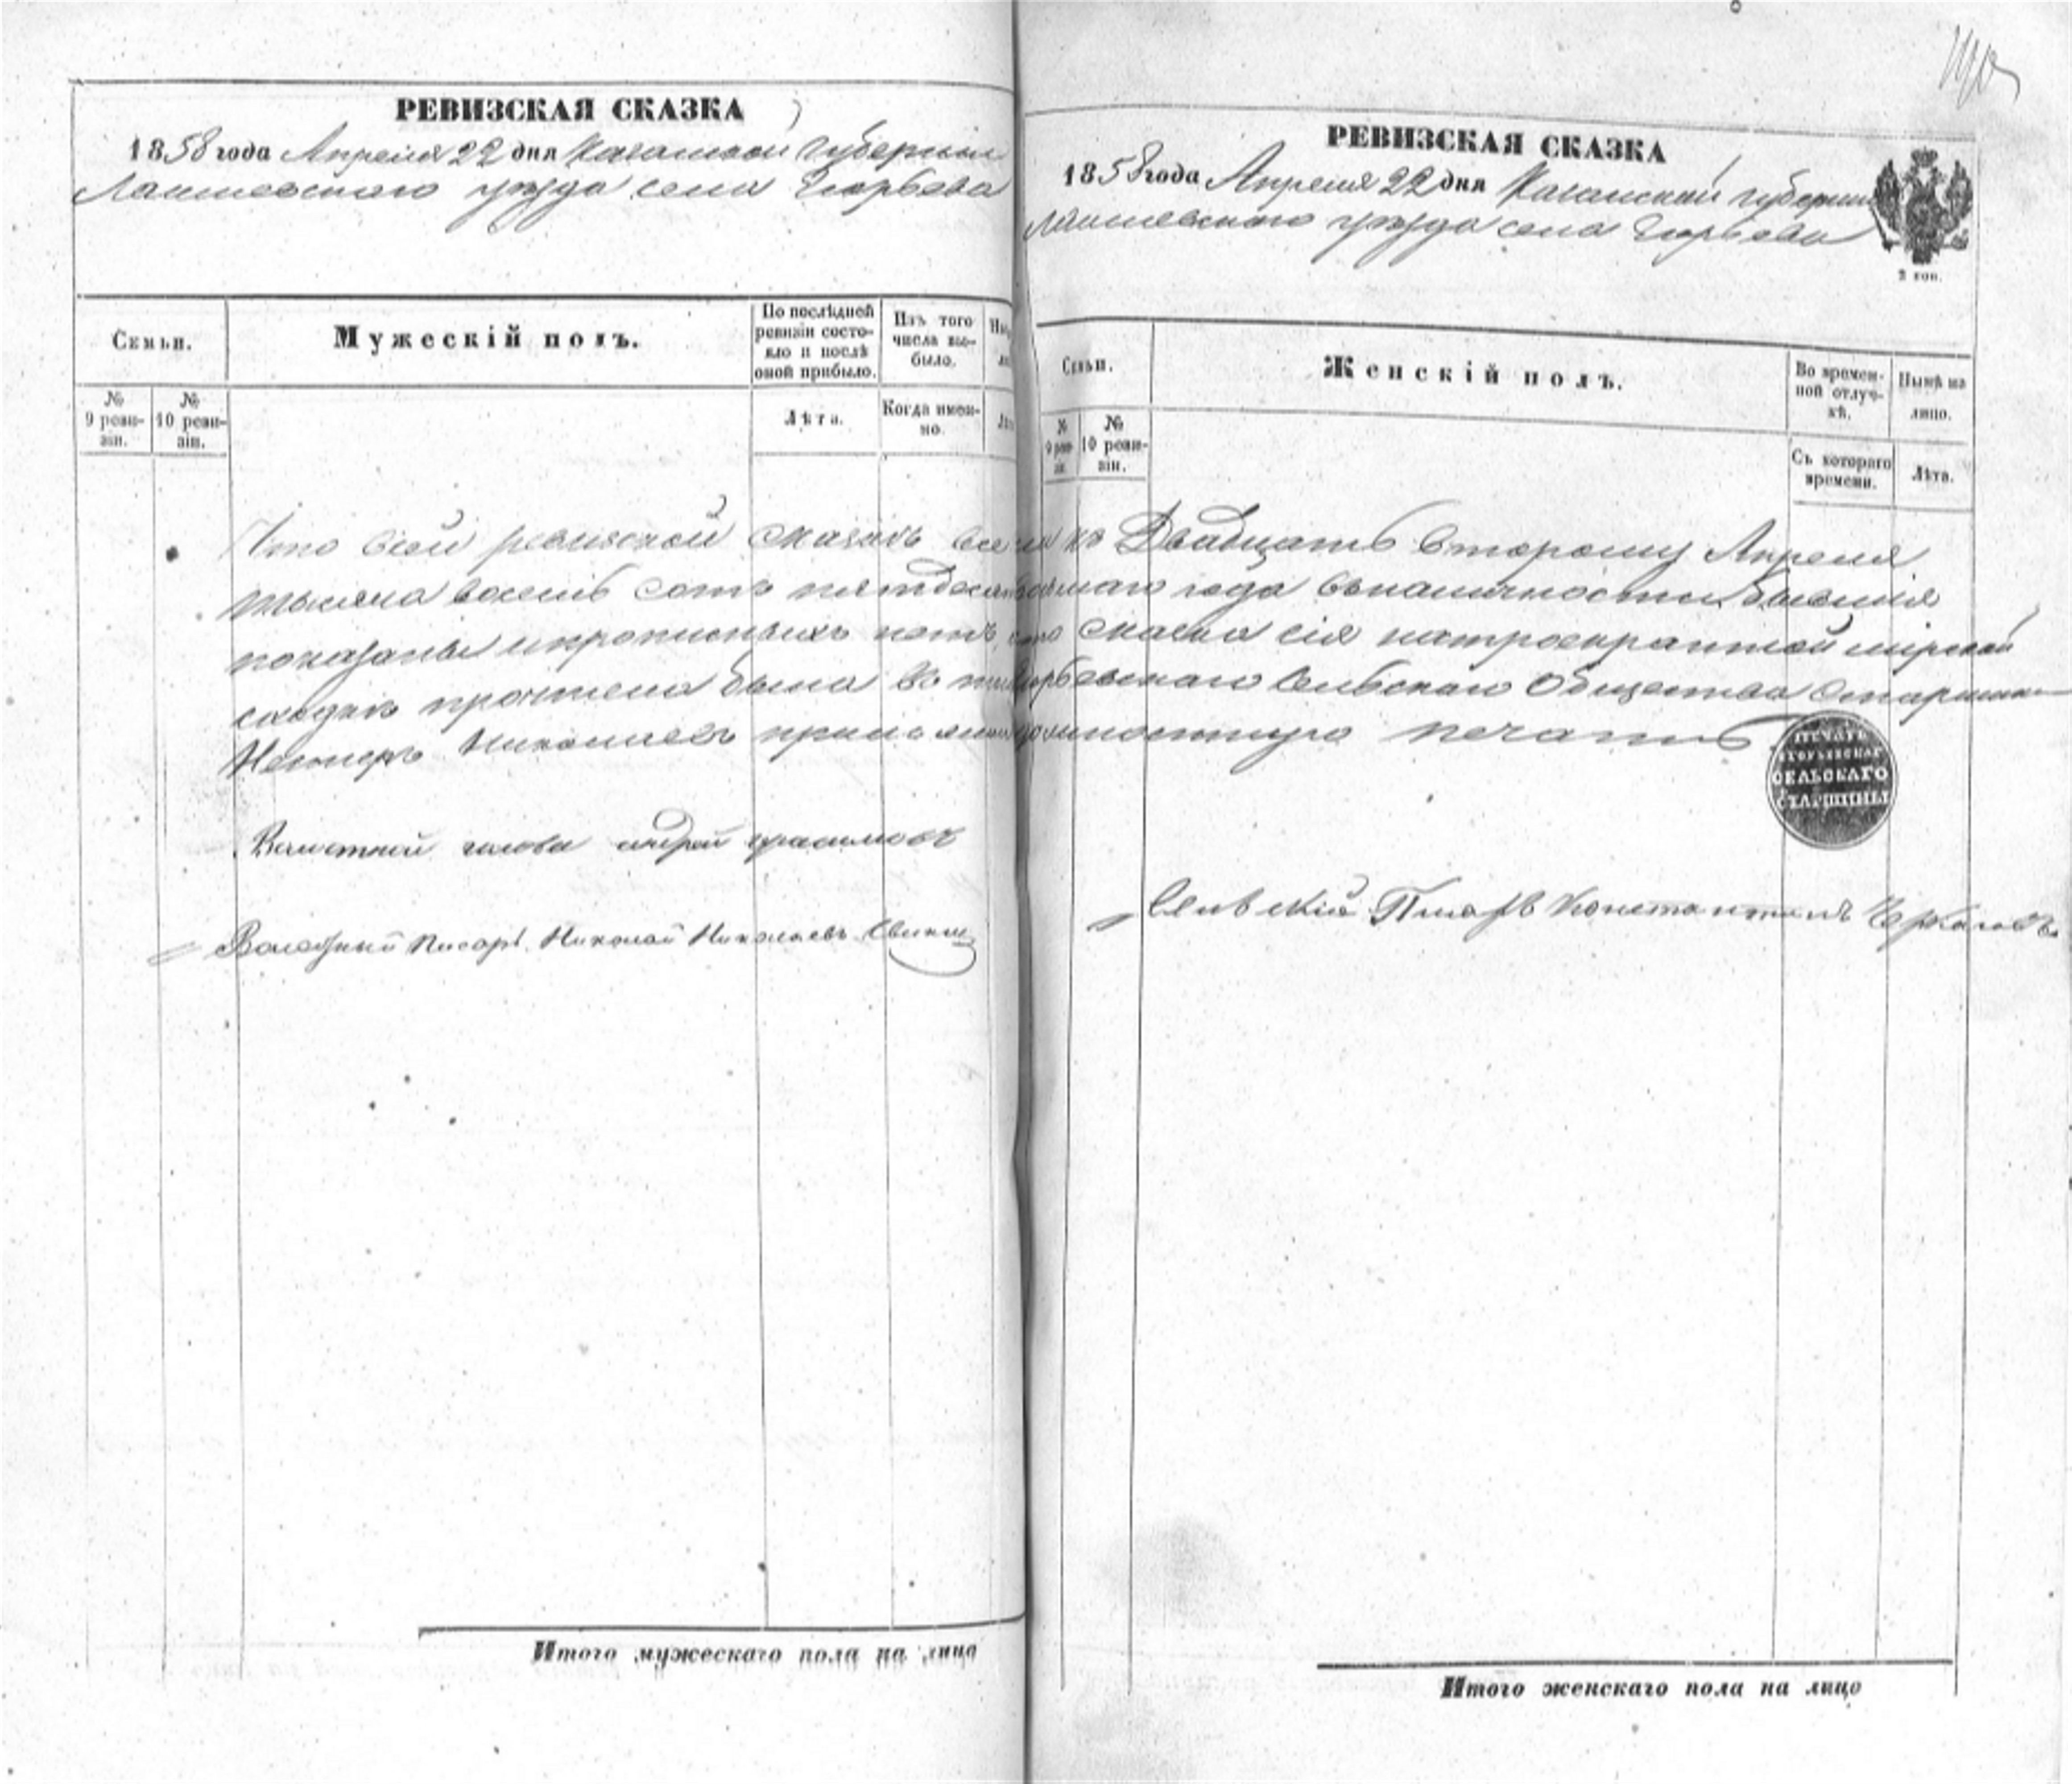 РЕВИЗСКАЯ СКАЗКА
1858 года Апреля 22 дня Казанской Губернии
Лаишевского уезда села Егорьева
Семьи.
Мужескій полъ.
По послѣдней ревизіи состояло и послѣ оной прибыло.
Изъ того числа выбыло.
№ 9 ревизіи.
№ 10 ревизіи.
Лѣта.
Когда именно.
Что въ сей ревизской сказкѣ все
тысяча восемь сотъ пятдесятъ
показаны и прописныхъ нетъ, что
сходке прочтена была въ томъ
Николаевъ приложилъ
Волостной голова андрей герасимовъ
Волостный Писарь Николай Николаевъ
Итого мужескаго пола на лицо
РЕВИЗСКАЯ СКАЗКА
1858 года Апреля 22 дня Казанской Губернии
Лаишевского уезда села Егорьева
2 коп.
Семьи.
Женскій полъ.
Во временной отлучкѣ.
Нынѣ на лицо.
№ 9 ревизіи
№ 10 ревизіи.
Съ котораго времени.
Лѣта.
къ Двадцать второму Апреля
года въналичности бывшия
сказка сія натроекратной мирской
сельскаго Общества Старшина
печать
ПЕЧАТЬ
ЕГОРЬЕВСКАГ
СЕЛЬСКАГО
СТАРШИНЫ
Сельскій Писарь Константинъ Черкасовъ
Итого женскаго пола на лицо